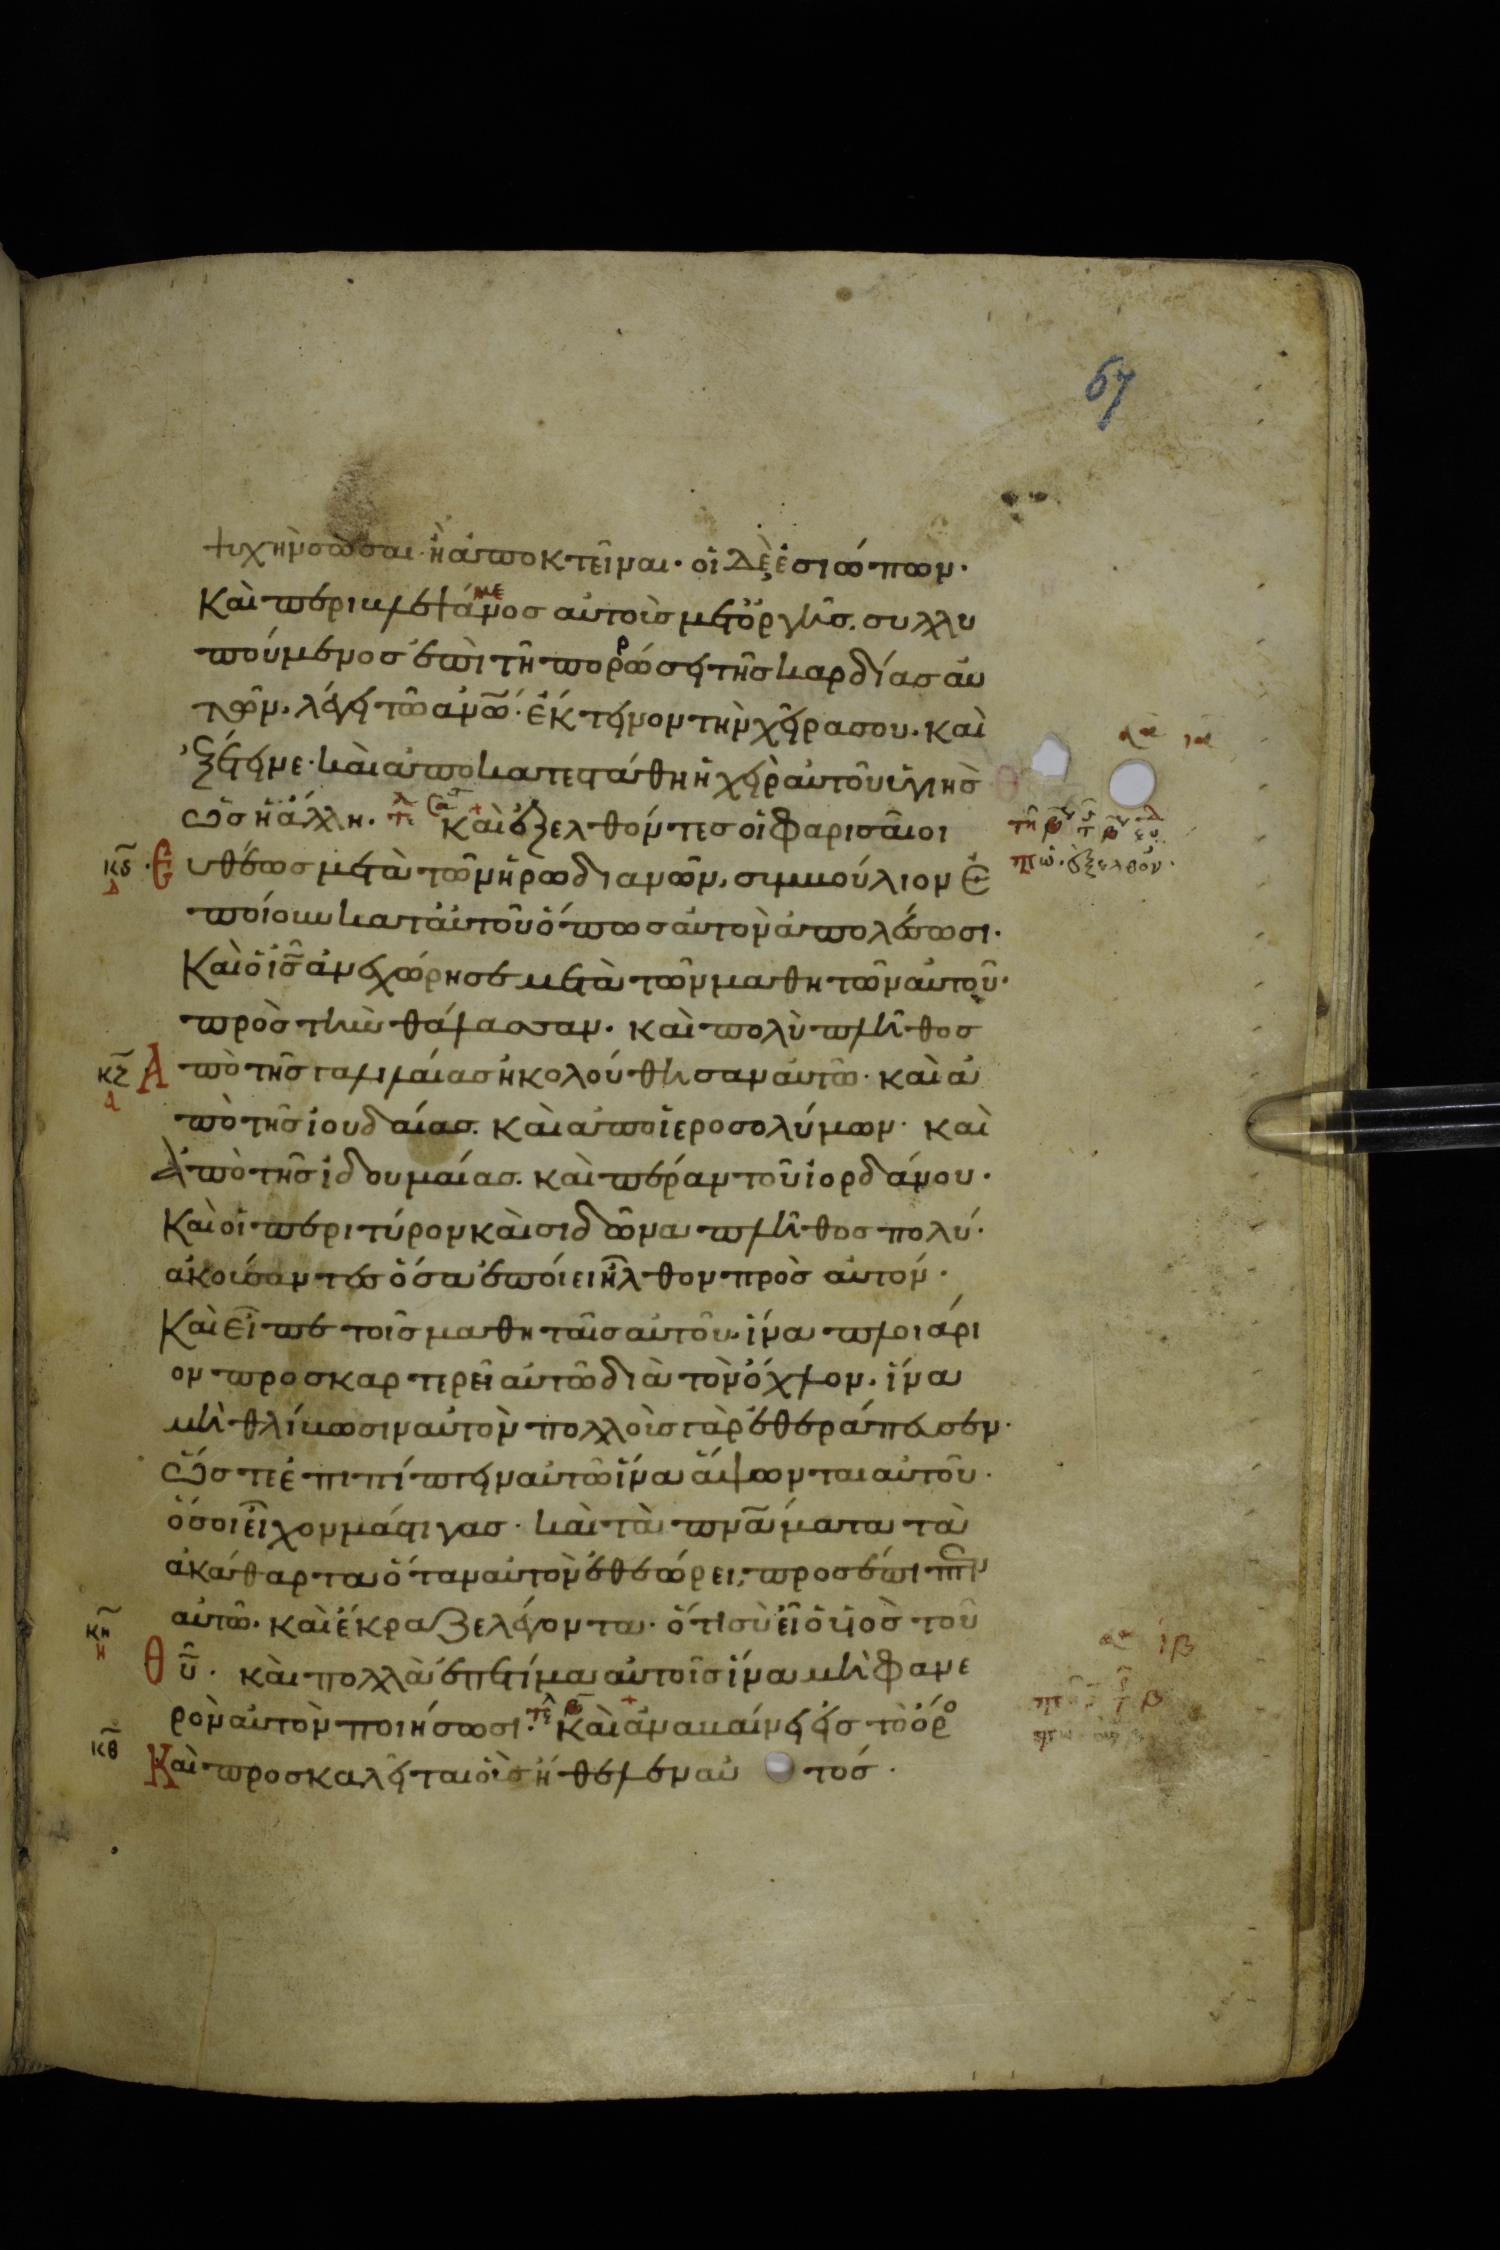 67
ψυχὴν σῶσαι· ἢ ἀποκτεῖναι· οἱ δὲ ἐσιώπων·
Καὶ περιβλεψάμενος αὐτοὺς μετ ὀργῆς. συλλυ
πούμενος ἐπὶ τῆ πορρώσει τῆς καρδίας αὐ
τῶν. λέγει τῶ ἀν̅ω̅· ἔκτεινον τὴν χεῖρα σου. καὶ
ἐξέτεινε· καὶ ἀποκατεστάθη ἡ χεὶρ αὐτοῦ ὑγιὴς
ὡς ἡ ἄλλη. Καὶ ἐξελθόντες οἱ φαρισαῖοι
κϛ Ευθέως μετὰ τῶν ἡρωδιανῶν, συμβούλιον ἐ
ποίουν κατ αὐτοῦ ὅπως αὐτὸν ἀπολέσωσι·
Καὶ ὁ ι̅ς̅ ἀνεχώρησε μετὰ τῶν μαθητῶν αὐτοῦ·
πρὸς τὴν θάλασσαν. καὶ πολὺ πλῆθος
κζ Α πὸ τῆς γαλιλαίας ἠκολούθησαν αὐτῶ· καὶ ἀ
πὸ τῆς ἰουδαίας. καὶ ἀπο ἱεροσολύμων· καὶ
ἀπὸ τῆς ἰδουμαίας. καὶ πέραν τοῦ ἰορδάνου·
Καὶ οἱ περι τύρον καὶ σιδῶνα πλῆθος πολύ·
ἀκούσαντες ὅσα ἐποίει ἦλθον πρὸς αὐτόν·
Καὶ εἶπε τοῖς μαθηταῖς αὐτοῦ. ἵνα πλοιάρι
ον προσκαρτερεῖ αὐτῶ διὰ τὸν ὄχλον. ἵνα
μὴ θλίβωσιν αὐτὸν πολλοὺς γὰρ ἐθεράπευσεν·
ὥστε ἐπιπίπτειν αὐτῶ ἵνα ἅψωνται αὐτοῦ·
ὅσοι εἶχον μάστιγας· καὶ τὰ πν̅α̅ματα τὰ
ἀκάθαρτα ὅταν αὐτὸν ἐθεώρει, προσέπιπτεν
αὐτῶ. καὶ ἔκραζε λέγοντα· ὅτι σὺ εἶ ὁ υἱὸς τοῦ
κη Θ υ̅. καὶ πολλὰ ἐπετίμα αὐτοῖς ἵνα μὴ φανε
ρὸν αὐτὸν ποιήσωσι. Καὶ ἀναβαίνει εἰς τὸ ὄρο
κθ Καὶ προσκαλεῖται οὓς ἤθελεν αὐτός·